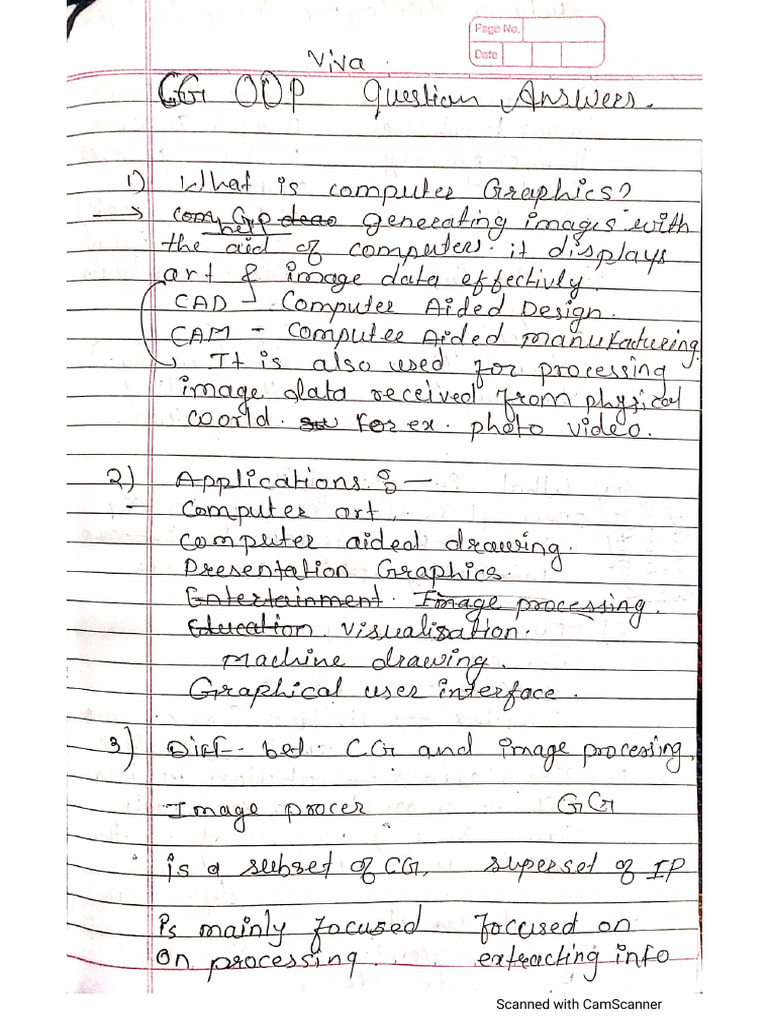 Page No.
Date
Viva
CG OOP Question Answers.
1) What is computer Graphics?
→ generating images with
help
the aid of computers. it displays
art & image data effectivly.
CAD - Computer Aided Design.
CAM - Computer Aided manufacturing.
It is also used for processing
image data received from physical
world. For ex. photo video.
2) Applications :-
- Computer art,
computer aided drawing.
Presentation Graphics.
Entertainment. Image processing.
Education. visualization.
machine drawing.
Graphical user interface.
3) Diff. bet. CG and image processing,
Image procer CG
is a subset of CG, superset of IP
Is mainly focused focused on
on processing. extracting info
Scanned with CamScanner